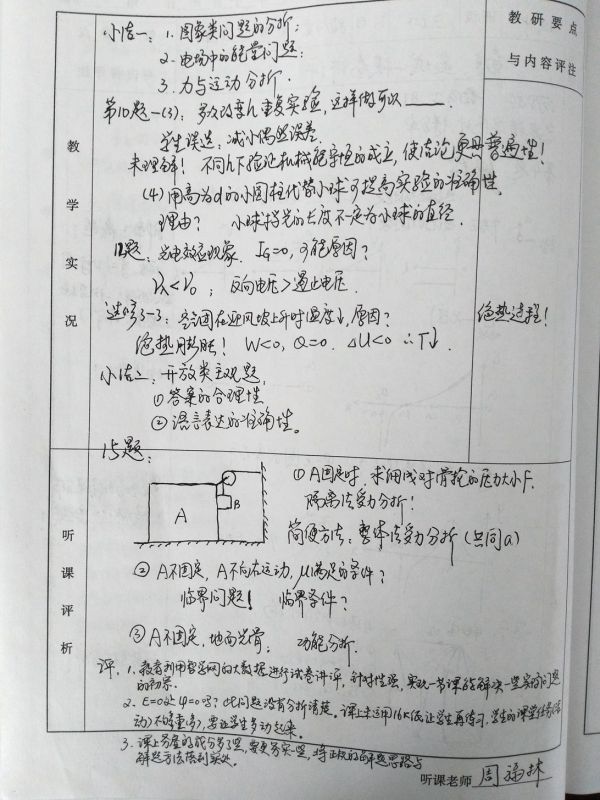 教研要点
与内容评注
教学实况
小结一：1. 图象类问题的分析；
2. 电场中的能量问题；
3. 力与运动分析.
第10题-(3)：多次改变h，重复实验，这样做可以____.
学生误选：减小偶然误差.
未理解！不同h下验证机械能守恒的成立，使结论更具普遍性！
(4) 用高为d的小圆柱代替小球可提高实验的准确性,
理由？ 小球挡光的长度不定为小球的直径.
12题：光电效应现象. IG=0, 可能原因？
ν<ν0 ； 反向电压>遏止电压.
选修3-3：空气团在迎风坡上升时温度↓,原因？
绝热膨胀！ W<0, Q=0. ΔU<0 ∴T↓.
绝热过程！
小结二：开放类主观题.
① 答案的合理性
② 语言表达的准确性。
听课评析
15题：
A
B
① A固定时, 求细线对滑轮的压力大小F.
隔离法受力分析！
简便方法：整体法受力分析（共同a）
② A不固定, A不向右运动, μ满足的条件？
临界问题！ 临界条件？
③ A不固定, 地面光滑： 功能分析.
评. 1. 教者利用智学网的大数据进行试卷讲评, 针对性强, 实现一节课能解决一些实际问题
的初衷.
2. E=0处φ=0吗？此问题没有分析清楚。课上未运用 让学生再练习, 学生的课堂任务(活
动)不够重(多), 要让学生多动起来。
3. 课上务虚的成分多了些, 要更务实些, 将正规的解题思路与
解题方法落到实处。
听课老师 周